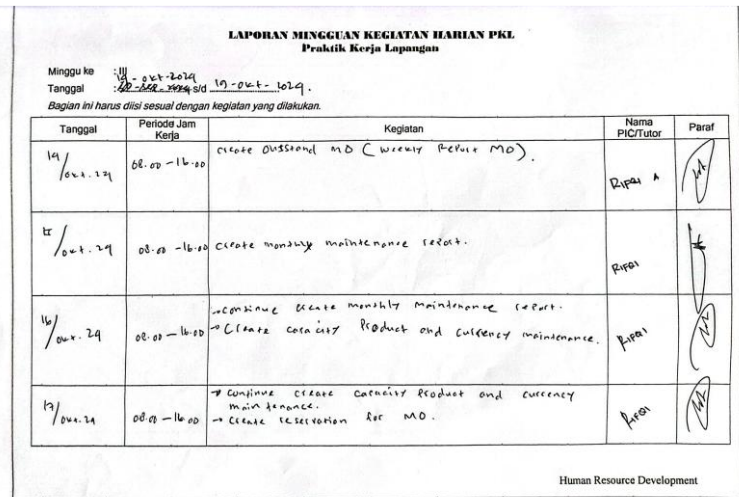 LAPORAN MINGGUAN KEGIATAN HARIAN PKL
Praktik Kerja Lapangan
Minggu ke : III
Tanggal : 14 - okt - 2024 s/d 19 - okt - 2024.
Bagian ini harus diisi sesuai dengan kegiatan yang dilakukan.
Tanggal Periode Jam Kerja Kegiatan Nama PIC/Tutor Paraf
14/okt.24 08.00 - 16.00 create Outstand MO (Weekly Report MO). RIFQI A
15/okt.24 08.00 - 16.00 create monthly maintenance report. RIFQI
16/okt.24 08.00 - 16.00 → continue create monthly maintenance report. RIFQI
→ Create capacity Product and currency maintenance.
17/okt.24 08.00 - 16.00 → continue create capacity product and currency maintenance. RIFQI
→ create reservation for MO.
Human Resource Development